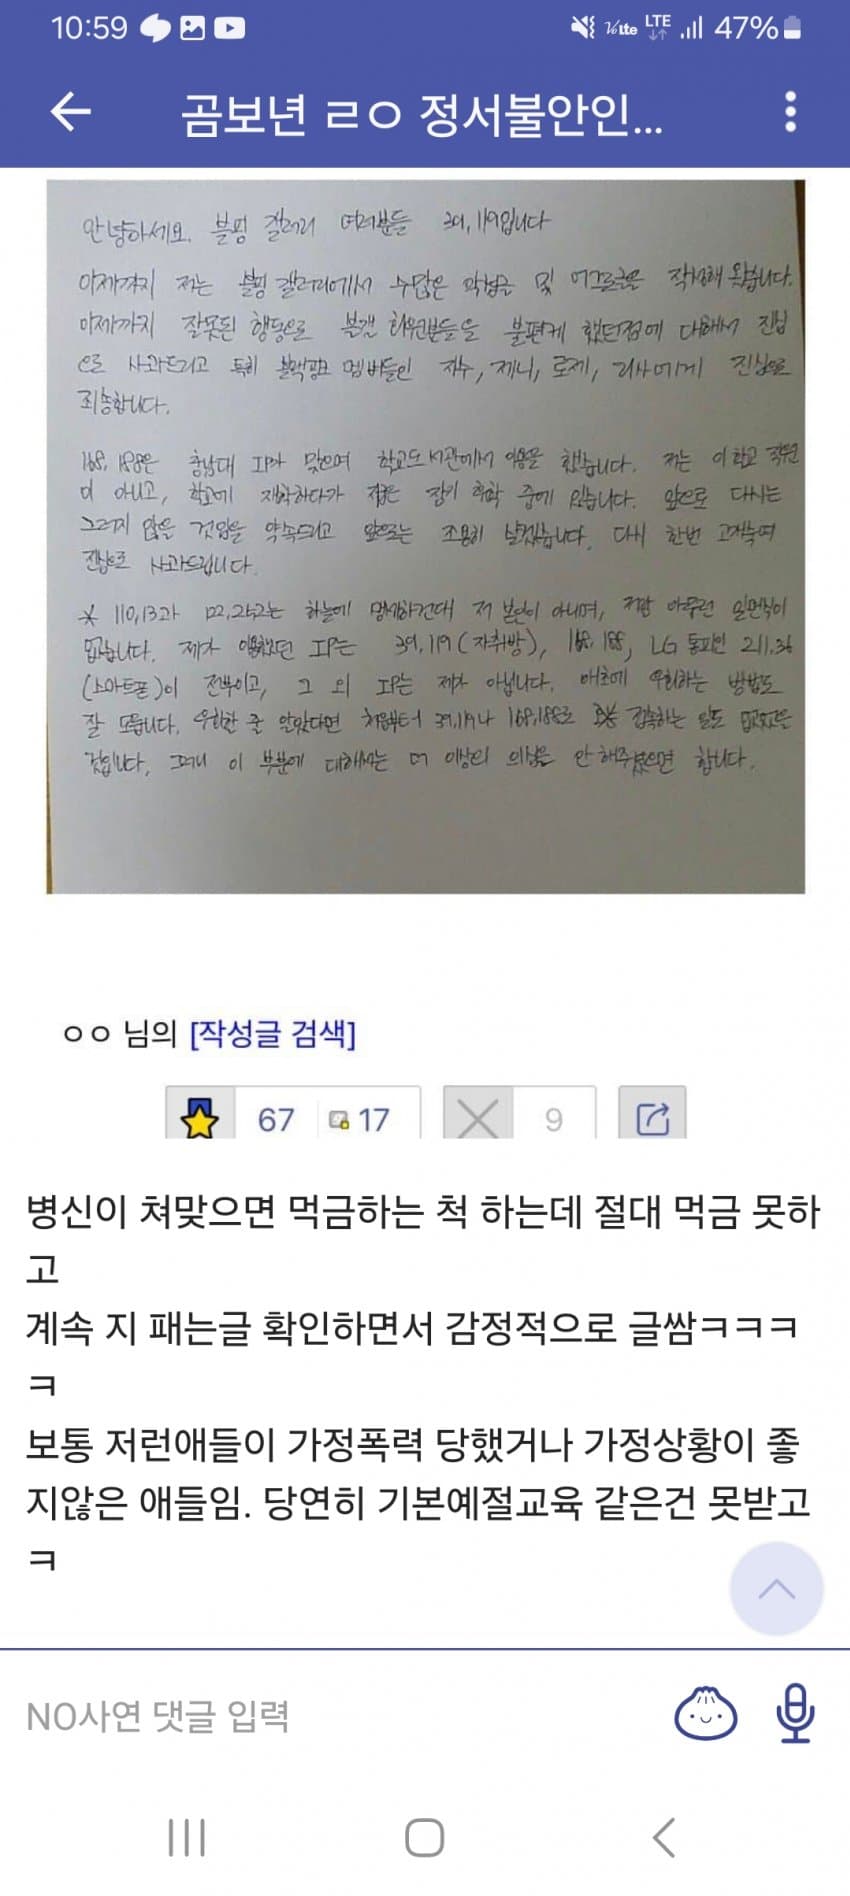 10:59 VoLTE LTE 47%
곰보년 ㄹㅇ 정서불안인...
안녕하세요. 블핑 갤러리 여러분들 39.119입니다
이제까지 저는 블핑 갤러리에서 수많은 악성글 및 어그로글을 작성해 왔습니다.
이제까지 잘못된 행동으로 블갤 회원분들을 불편케 했던점에 대해서 진심
으로 사과드리고 특히 블랙핑크 멤버들인 지수, 제니, 로제, 리사에게 진심으로
죄송합니다.
168.188은 충남대 IP가 맞으며 학교도서관에서 이용을 했습니다. 저는 이 학교 직원
이 아니고, 학교에 재학하다가 지금은 장기 휴학 중에 있습니다. 앞으로 다시는
그러지 않을 것임을 약속드리고 앞으로는 조용히 살겠습니다. 다시 한번 고개숙여
진심으로 사과드립니다.
* 110.13과 122.252는 하늘에 맹세하건대 저 본인이 아니며, 저랑 아무런 일면식이
없습니다. 제가 이용했던 IP는 39.119(자취방), 168.188, LG 통피인 211.36
(스마트폰)이 전부이고, 그 외 IP는 제가 아닙니다. 애초에 우회하는 방법도
잘 모릅니다. 우회할 줄 알았다면 처음부터 39.119나 168.188로 접속하는 일도 없었을
것입니다. 그러니 이 부분에 대해서는 더 이상의 의심은 안 해주셨으면 합니다.
ㅇㅇ 님의 [작성글 검색]
67 17 9
병신이 쳐맞으면 먹금하는 척 하는데 절대 먹금 못하
고
계속 지 패는글 확인하면서 감정적으로 글쌈ㅋㅋㅋ
ㅋ
보통 저런애들이 가정폭력 당했거나 가정상황이 좋
지않은 애들임. 당연히 기본예절교육 같은건 못받고
ㅋ
NO사연 댓글 입력